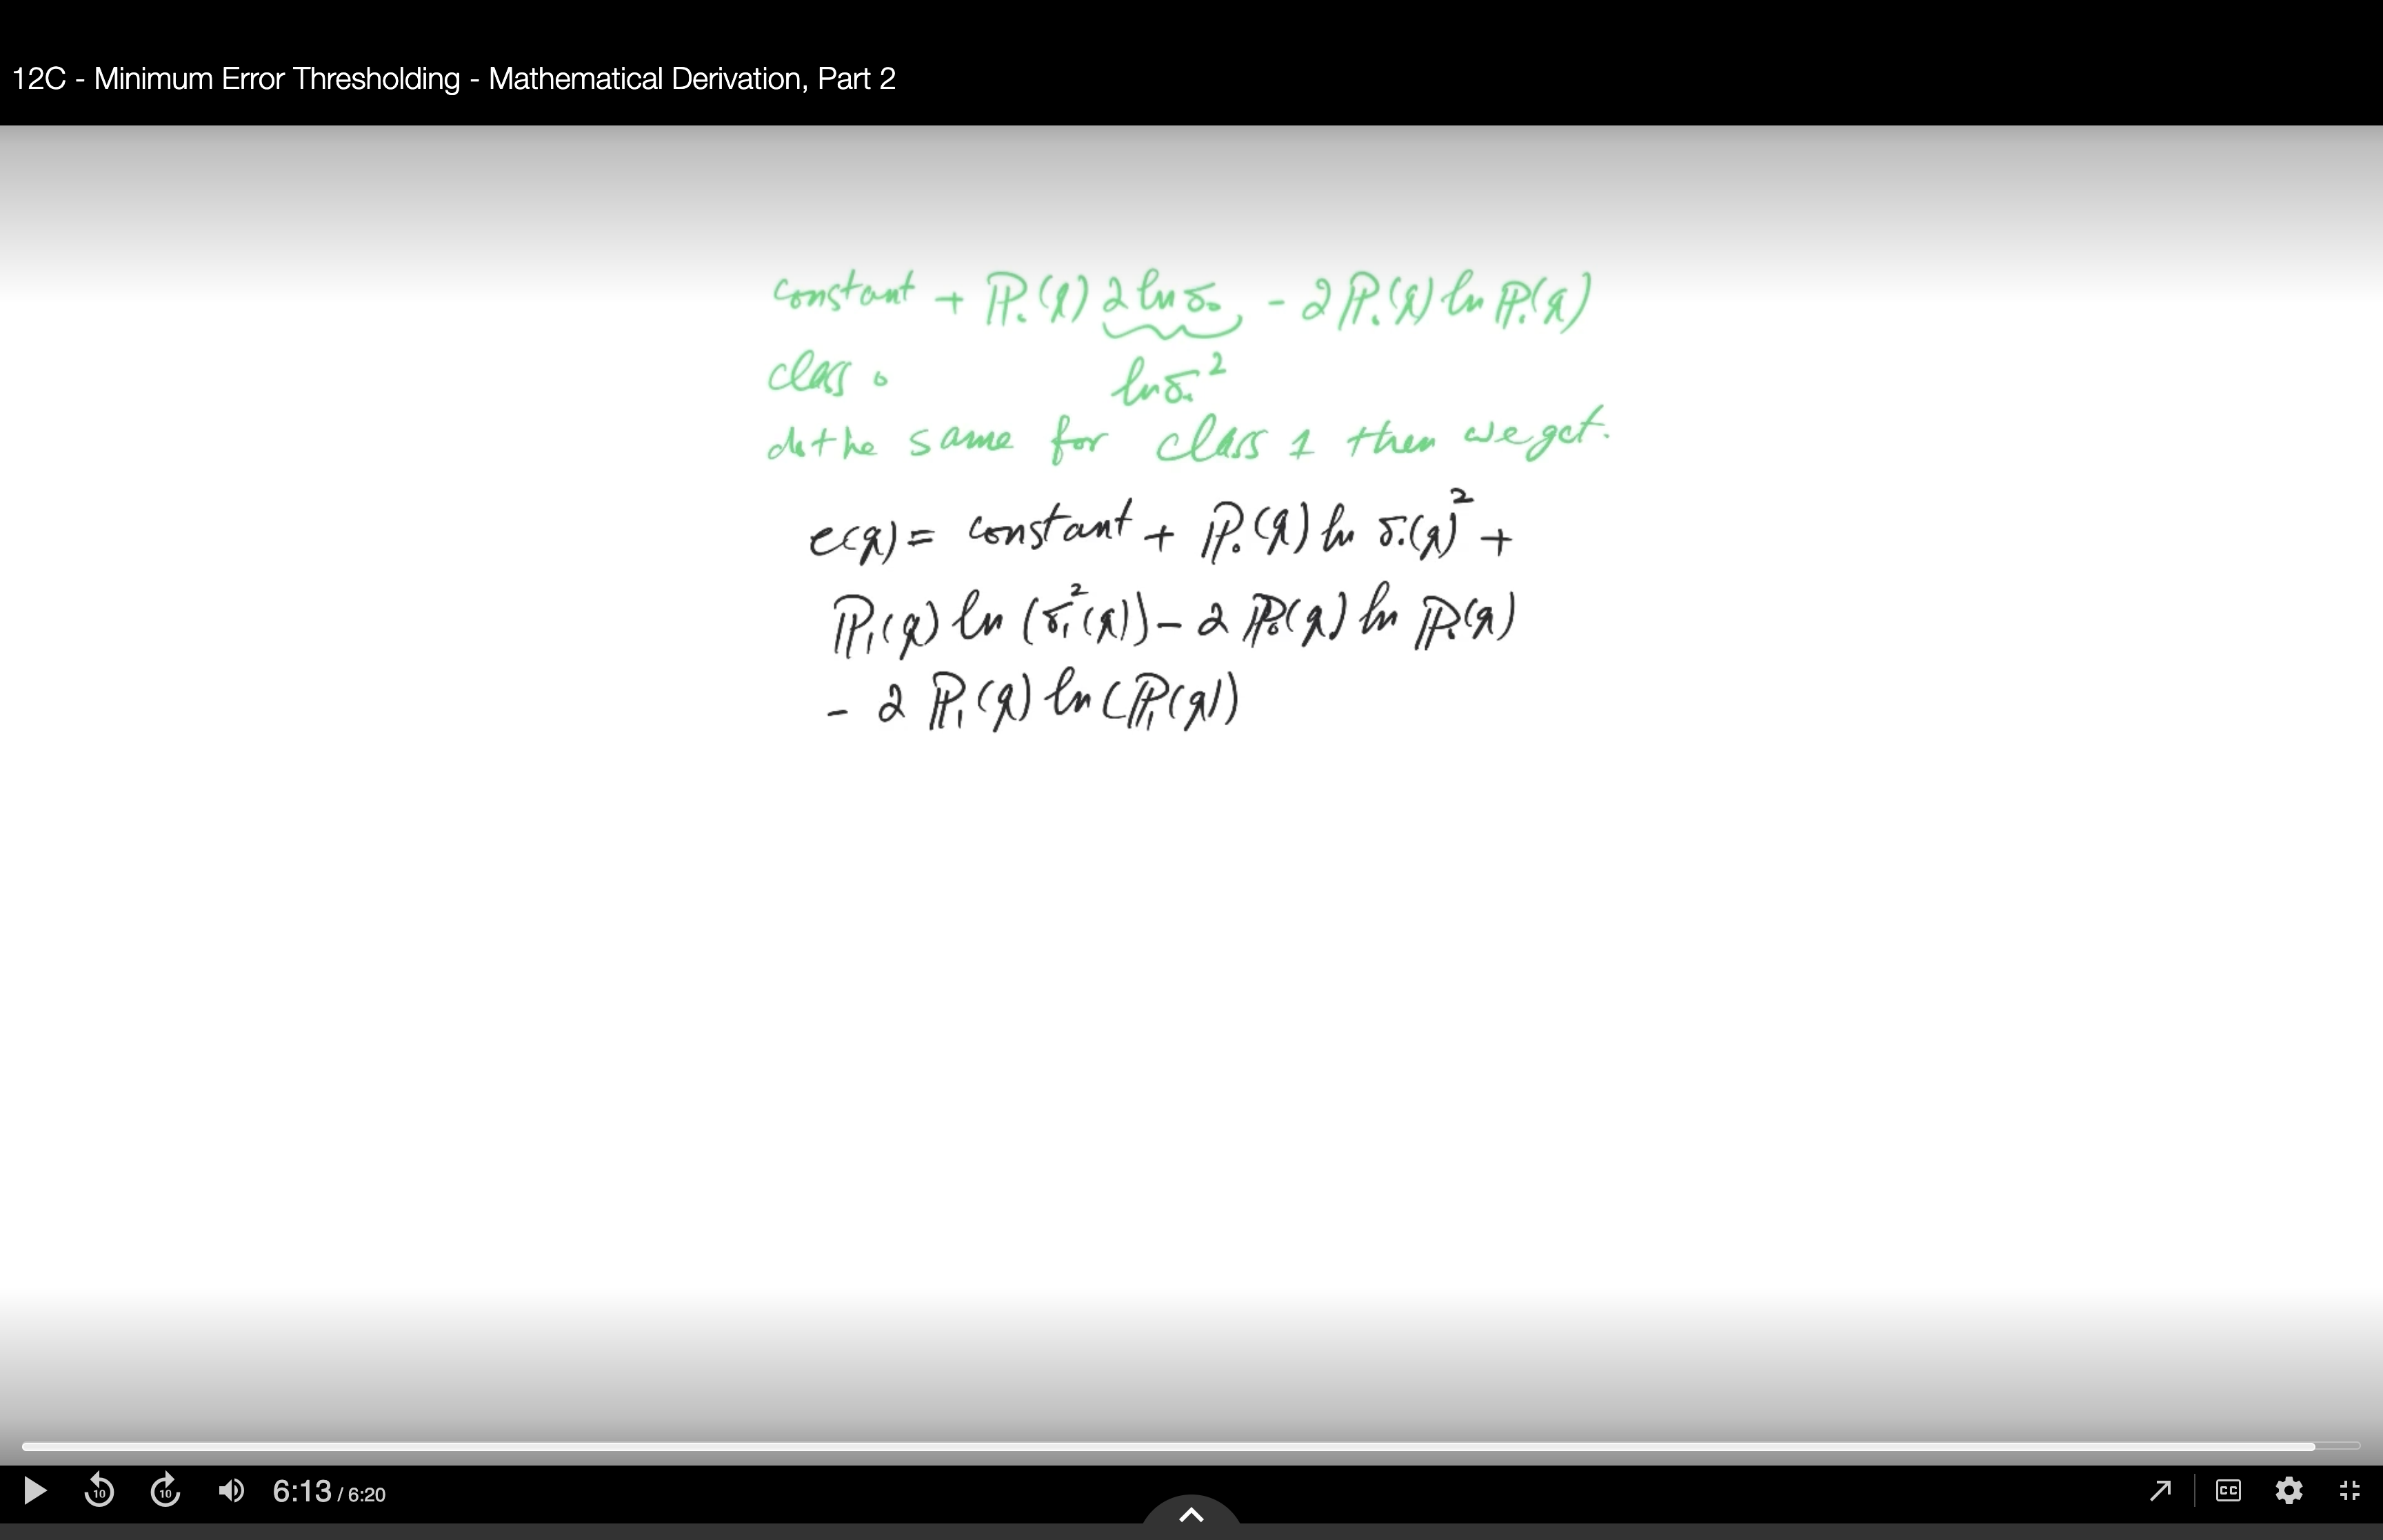 12C - Minimum Error Thresholding - Mathematical Derivation, Part 2
constant + ℙ₀(q) 2 ln σ₀ - 2 ℙ₀(q) ln ℙ₀(q)
class 0
ln σ₀²
do the same for class 1 then we get.
e(q) = constant + ℙ₀(q) ln σ₀(q)² +
ℙ₁(q) ln (σ₁²(q)) - 2 ℙ₀(q) ln ℙ₀(q)
- 2 ℙ₁(q) ln (ℙ₁(q))
10 10 6:13 / 6:20 CC